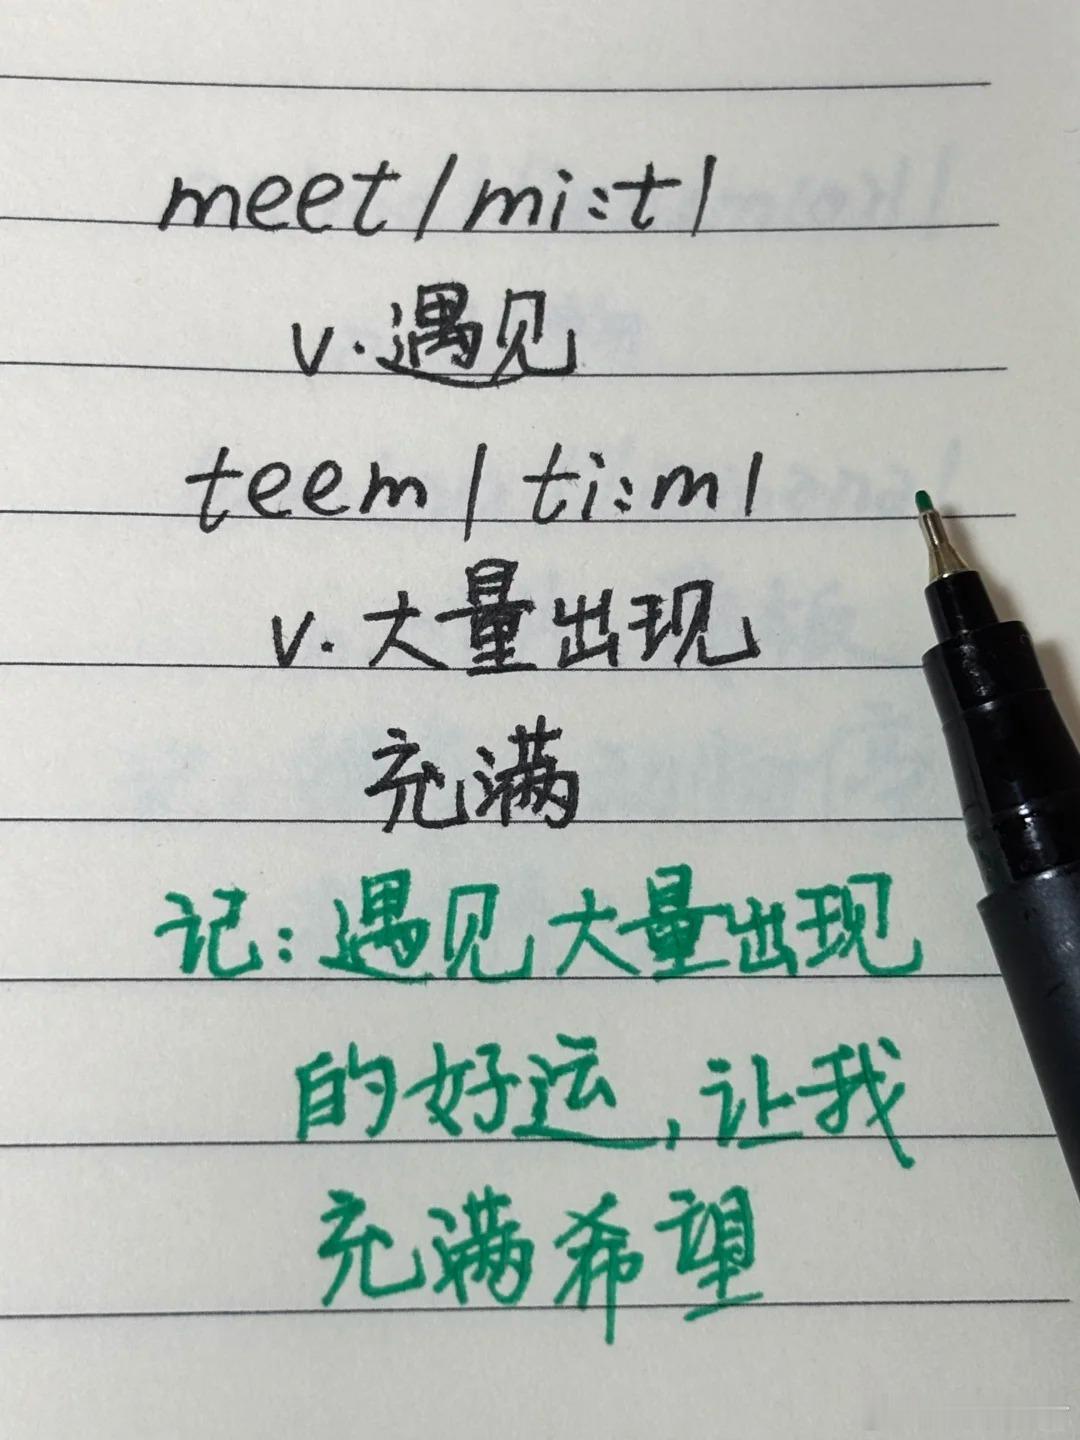 meet/mi:t/
v.遇见
teem/ti:m/
v.大量出现
充满
记:遇见大量出现
的好运,让我
充满希望